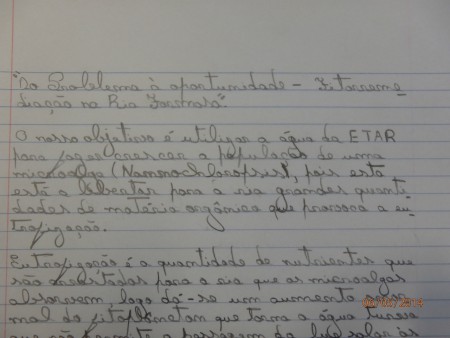 "Do Problema à oportunidade - Fitorreme
diação na Ria Formosa".
O nosso objetivo é utilizar a água da ETAR
para fazer crescer a população de uma
microalga (Nannochloropsis), pois esta
está a libertar para a ria grandes quanti
dades de matéria orgânica que provoca a eu
trofização.
Eutrofização é a quantidade de nutrientes que
são para a ria que as microalgas
absorvem, logo dá-se um aumento anor
mal do fitoplâncton que torna a água turva
que não permite a passagem da luz solar às